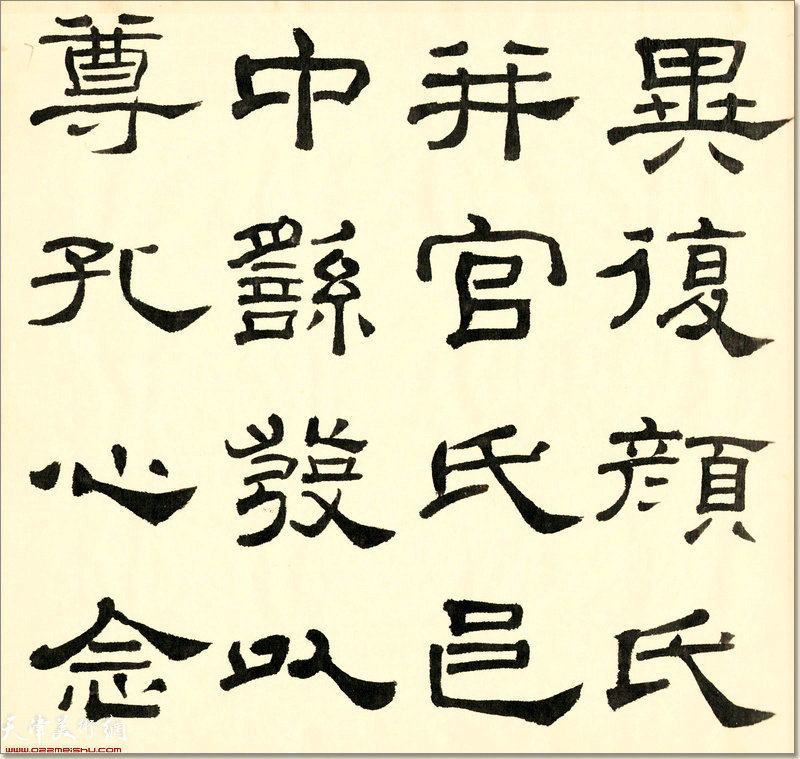 異復顏氏
并官氏邑
中繇發以
尊孔心念
天津美術網
www.022meishu.com